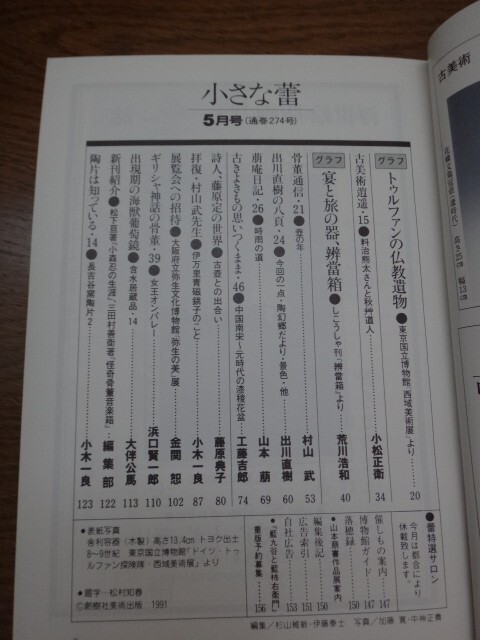 小さな蕾
5月号(通巻274号)
グラフ トゥルファンの仏教遺物●東京国立博物館「西域美術展」より 20
古美術逍遥・15●料治熊太さんと秋艸道人 小松正衛 34
グラフ 宴と旅の器、辨當箱●しこうしゃ刊『辨當箱』より 荒川浩和 40
骨董通信・21●壺の年 村山 武 53
出川直樹の八頁・24●今回の一点・陶幻郷だより・景色・他 出川直樹 60
萠庵日記・26●時雨の道 山本 萠 69
古きよきもの思いつくまま・46●中国南宋〜元時代の漆稜花盆 工藤吉郎 74
詩人、藤原定の世界●古壺との出合い 藤原典子 80
拝復・村山武先生●伊万里青磁銚子のこと 小木一良 87
展覧会への招待●大阪府立弥生文化博物館「弥生の美」展 金関 恕 102
ギリシャ神話の骨董・39●女王オンパレー 浜口賢一郎 110
出現期の海獣葡萄鏡●含水居蔵品・14 大伴公馬 113
新刊紹介●松下亘著『小森忍の生涯』、三田村善衛著『怪奇骨董音楽箱』 編集部 122
陶片は知っている・14●長吉谷窯陶片2 小木一良 123
●蕾特選サロン
今月は都合により
休載致します。
催しもの案内 147
博物館ガイド 147
落穂録 150
●山本萠書作品展案内
編集後記 150
広告索引 151
自社広告 153
●『藍九谷と藍柿右衛門』
重版予約募集 156
●表紙写真
舎利容器(木製)高さ13.4cm トヨク出土
8〜9世紀 東京国立博物館「ドイツ・トゥ
ルファン探険隊・西域美術展」より
●題字―松村知春
©創樹社美術出版 1991
編集/杉山維新・伊藤泰士 写真/加藤 寛・中神正義
古美術